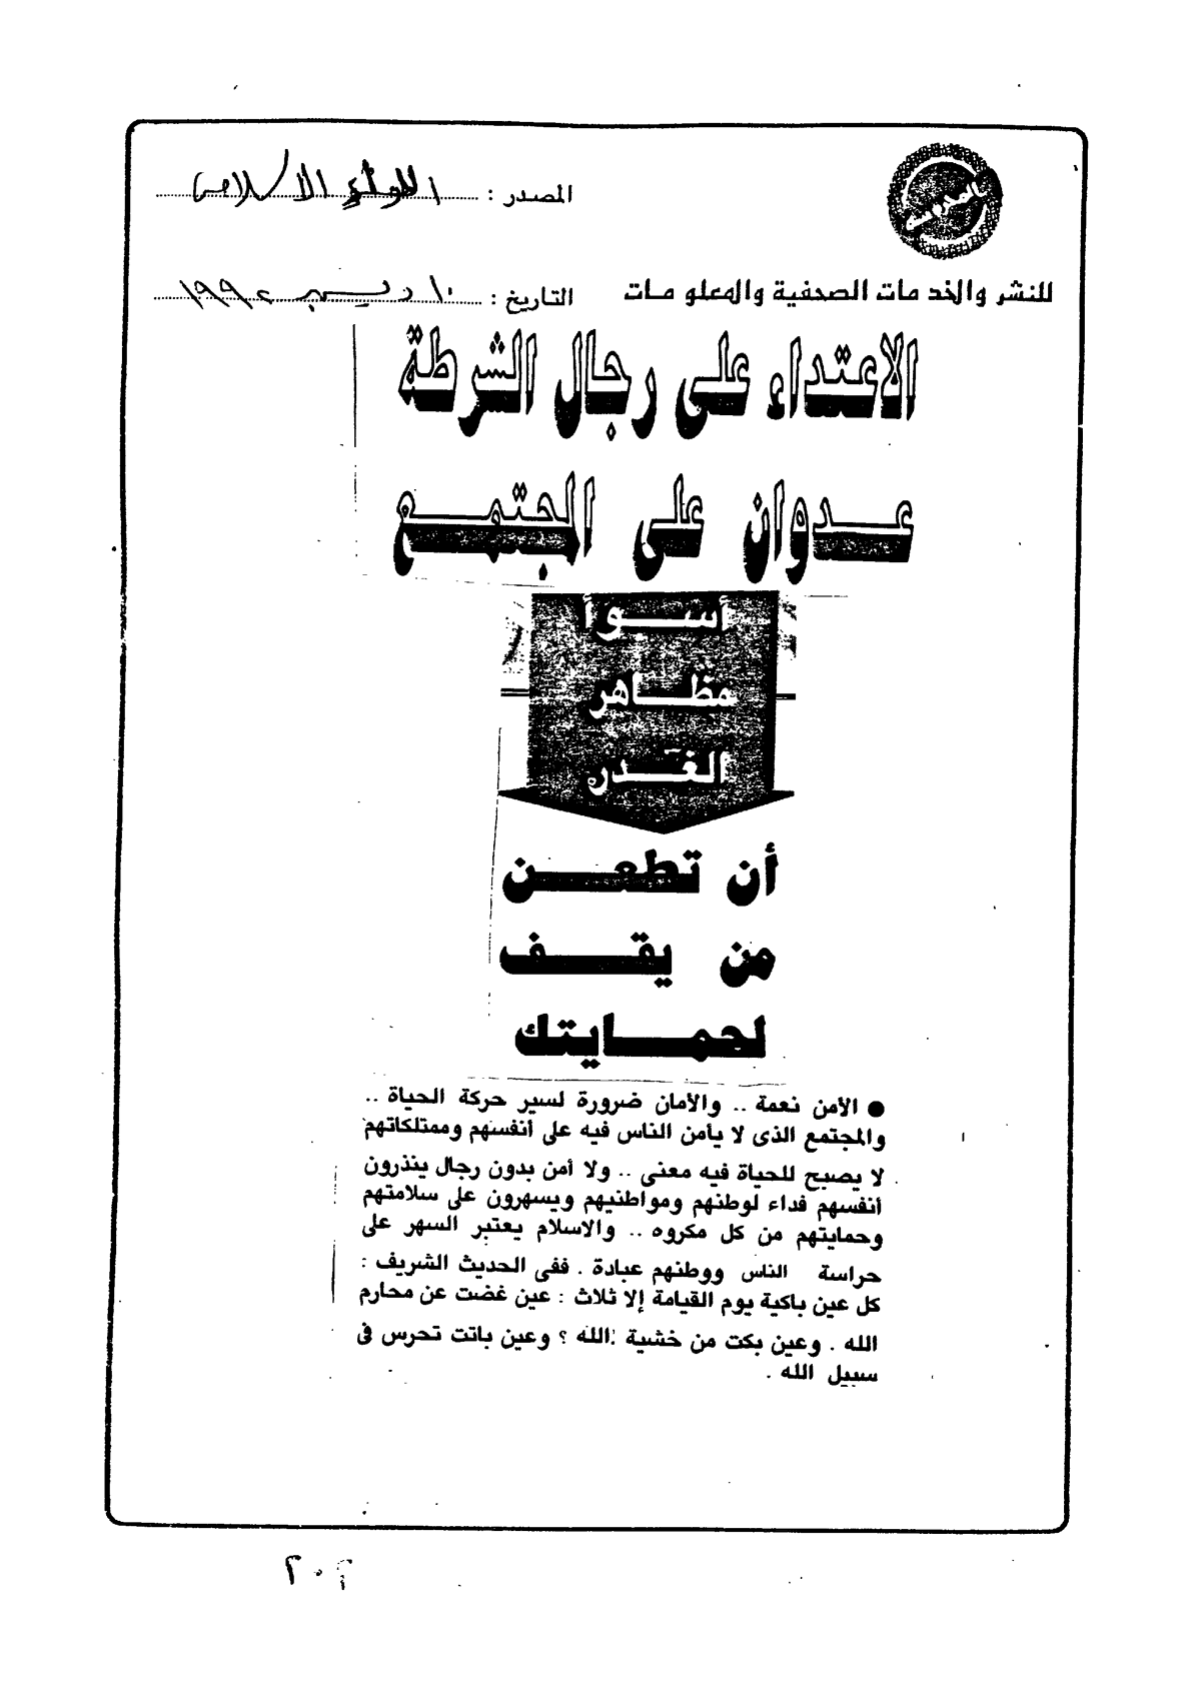 المصدر : اللواء الاسلامى
للنشر والخدمات الصحفية والمعلومات
التاريخ : ١٠ ديسمبر ١٩٩٢
الاعتداء على رجال الشرطة
عدوان على المجتمع
أسوأ
مظاهر
الغدر
أن تطعن
من يقف
لحمايتك
● الأمن نعمة .. والأمان ضرورة لسير حركة الحياة ..
والمجتمع الذى لا يأمن الناس فيه على أنفسهم وممتلكاتهم
لا يصبح للحياة فيه معنى .. ولا أمن بدون رجال ينذرون
أنفسهم فداء لوطنهم ومواطنيهم ويسهرون على سلامتهم
وحمايتهم من كل مكروه .. والاسلام يعتبر السهر على
حراسة الناس ووطنهم عبادة . ففى الحديث الشريف :
كل عين باكية يوم القيامة إلا ثلاث : عين غضت عن محارم
الله . وعين بكت من خشية الله ؟ وعين باتت تحرس فى
سبيل الله .